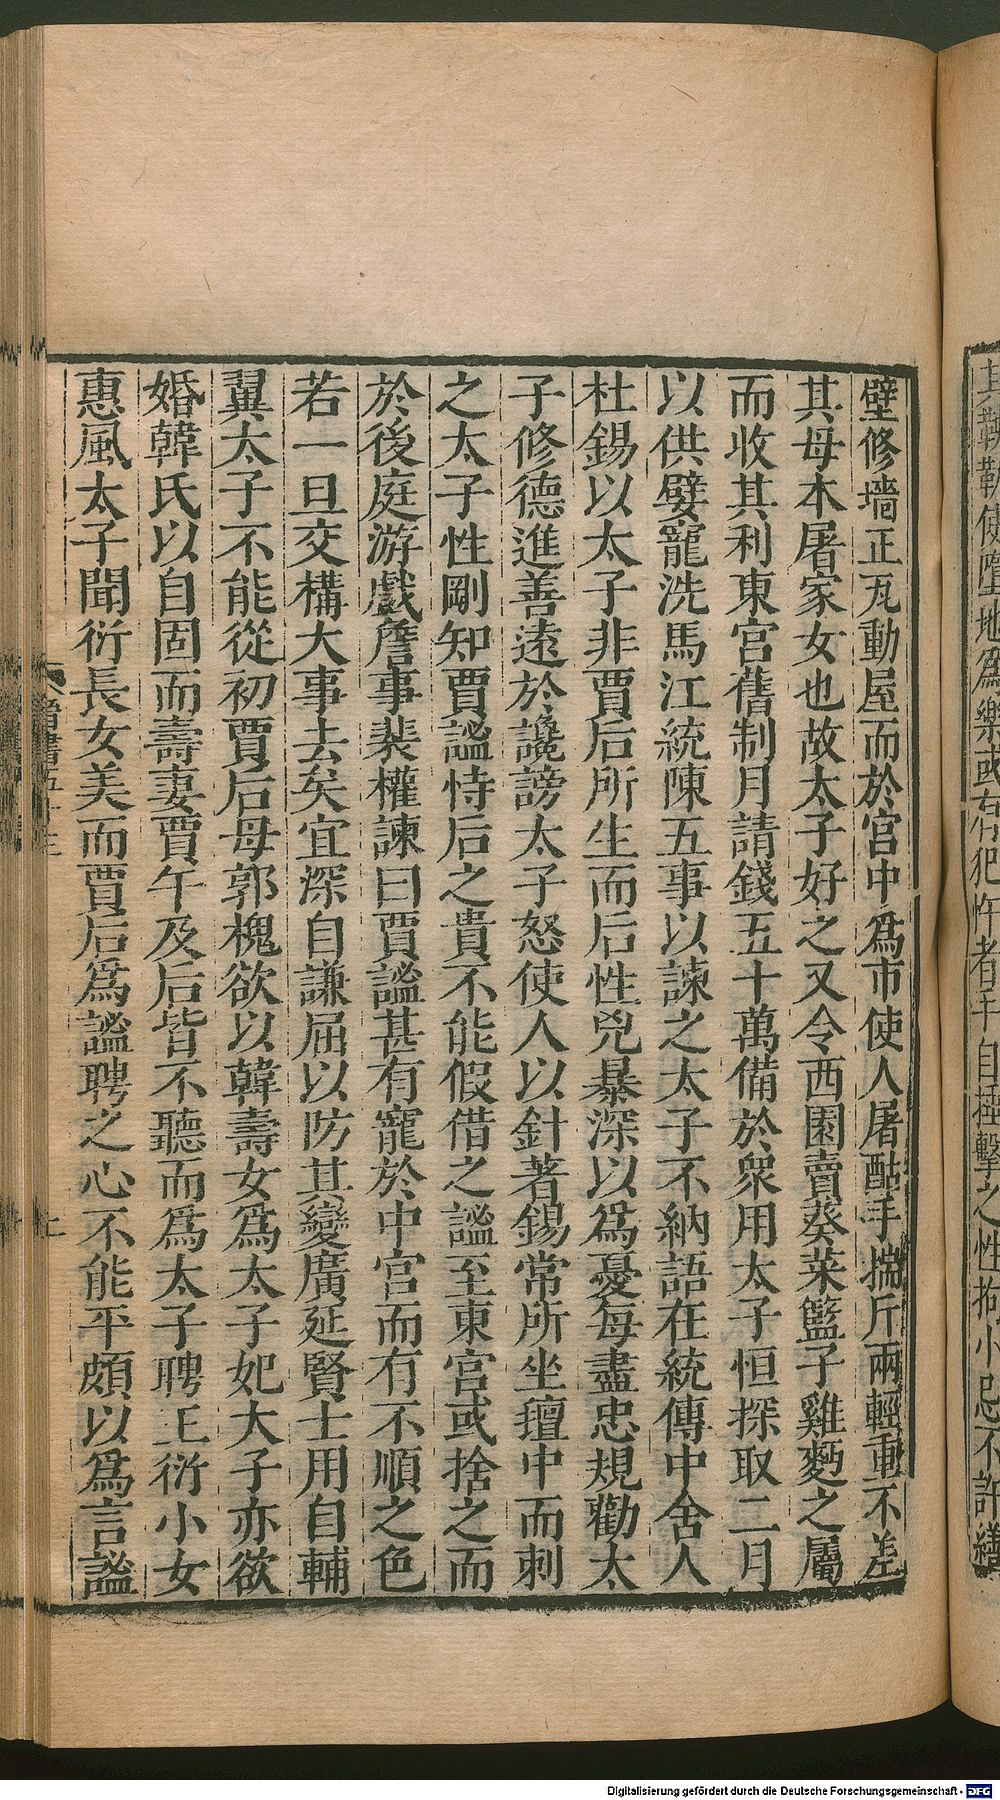 其鞅勒使墮地爲樂或有犯忤者手自捶擊之性拘小忌不許繕
壁修墻正瓦動屋而於宮中爲市使人屠酤手揣斤兩輕重不差
其母本屠家女也故太子好之又令西園賣葵菜籃子雞麪之屬
而收其利東宮舊制月請錢五十萬備於衆用太子恒探取二月
以供嬖寵洗馬江統陳五事以諫之太子不納語在統傳中舍人
杜錫以太子非賈后所生而后性兇暴深以爲憂每盡忠規勸太
子修德進善遠於讒謗太子怒使人以針著錫常所坐氊中而刺
之太子性剛知賈謐恃后之貴不能假借之謐至東宮或捨之而
於後庭游戲詹事裴權諫曰賈謐甚有寵於中宮而有不順之色
若一旦交構大事去矣宜深自謙屈以防其變廣延賢士用自輔
翼太子不能從初賈后母郭槐欲以韓壽女爲太子妃太子亦欲
婚韓氏以自固而壽妻賈午及后皆不聽而爲太子聘王衍小女
惠風太子聞衍長女美而賈后爲謐聘之心不能平頗以爲言謐
晉書五十三
Digitalisierung gefördert durch die Deutsche Forschungsgemeinschaft - DFG